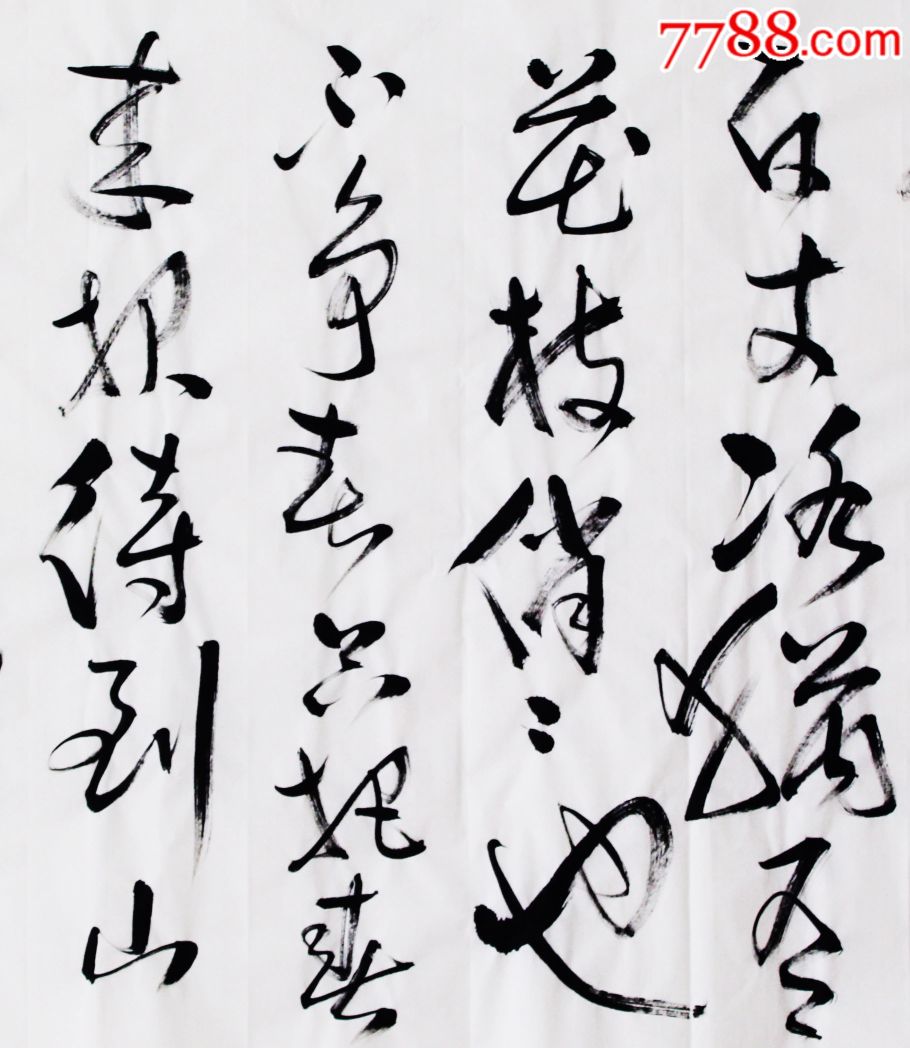 7788.com
百丈冰猶有
花枝俏〻也
不争春只把春
来报待到山